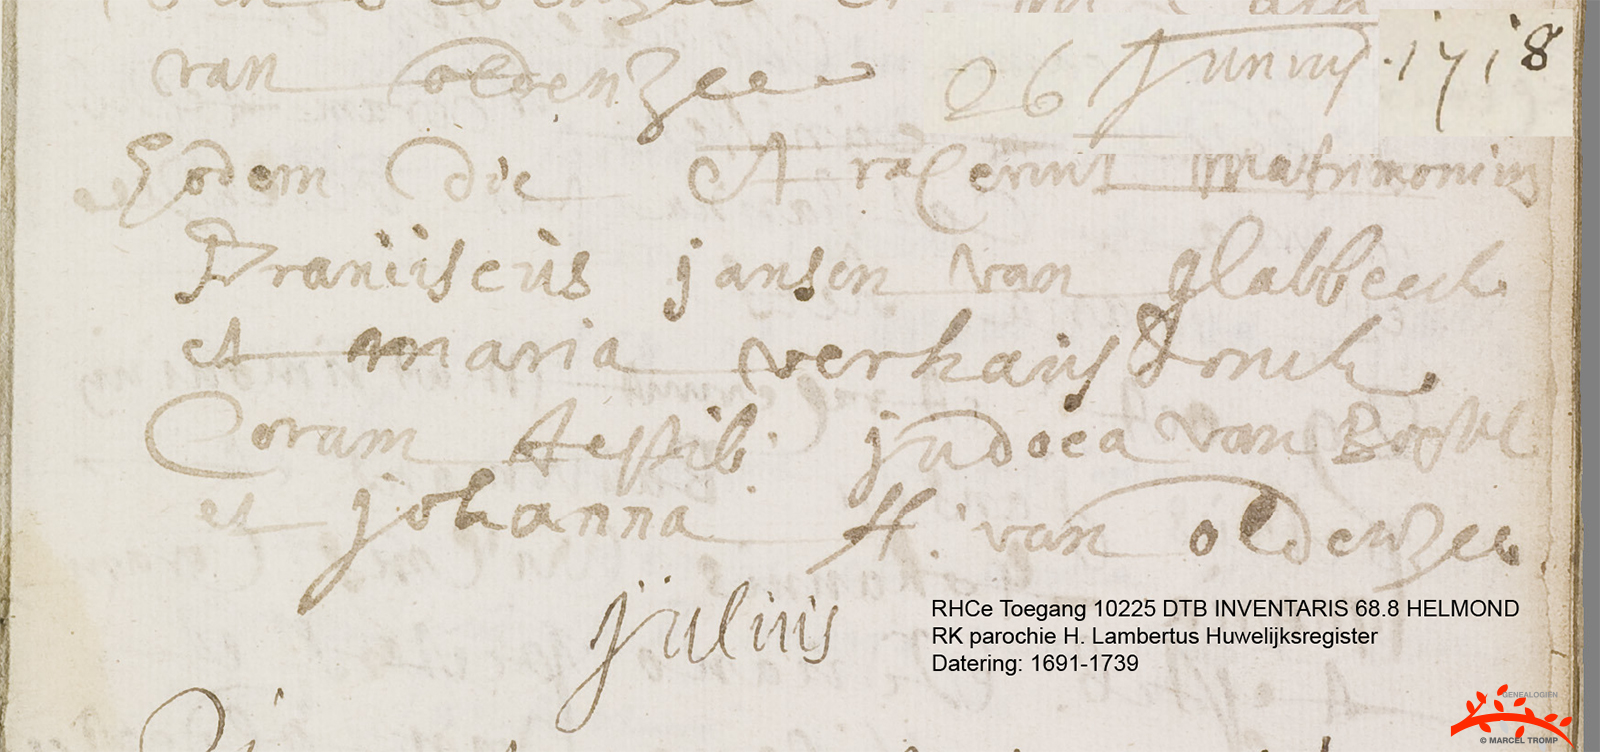 van oldenzee 26 Junius 1718
Eodem die Contraxerunt matrimonium
Franciscus jansen van glabbeeck
et maria verhaus donck
Coram testib: judoca van Boxtel
et johanna H. van oldenzee
julius
RHCe Toegang 10225 DTB INVENTARIS 68.8 HELMOND
RK parochie H. Lambertus Huwelijksregister
Datering: 1691-1739
GENEALOGIEN
© MARCEL TROMP